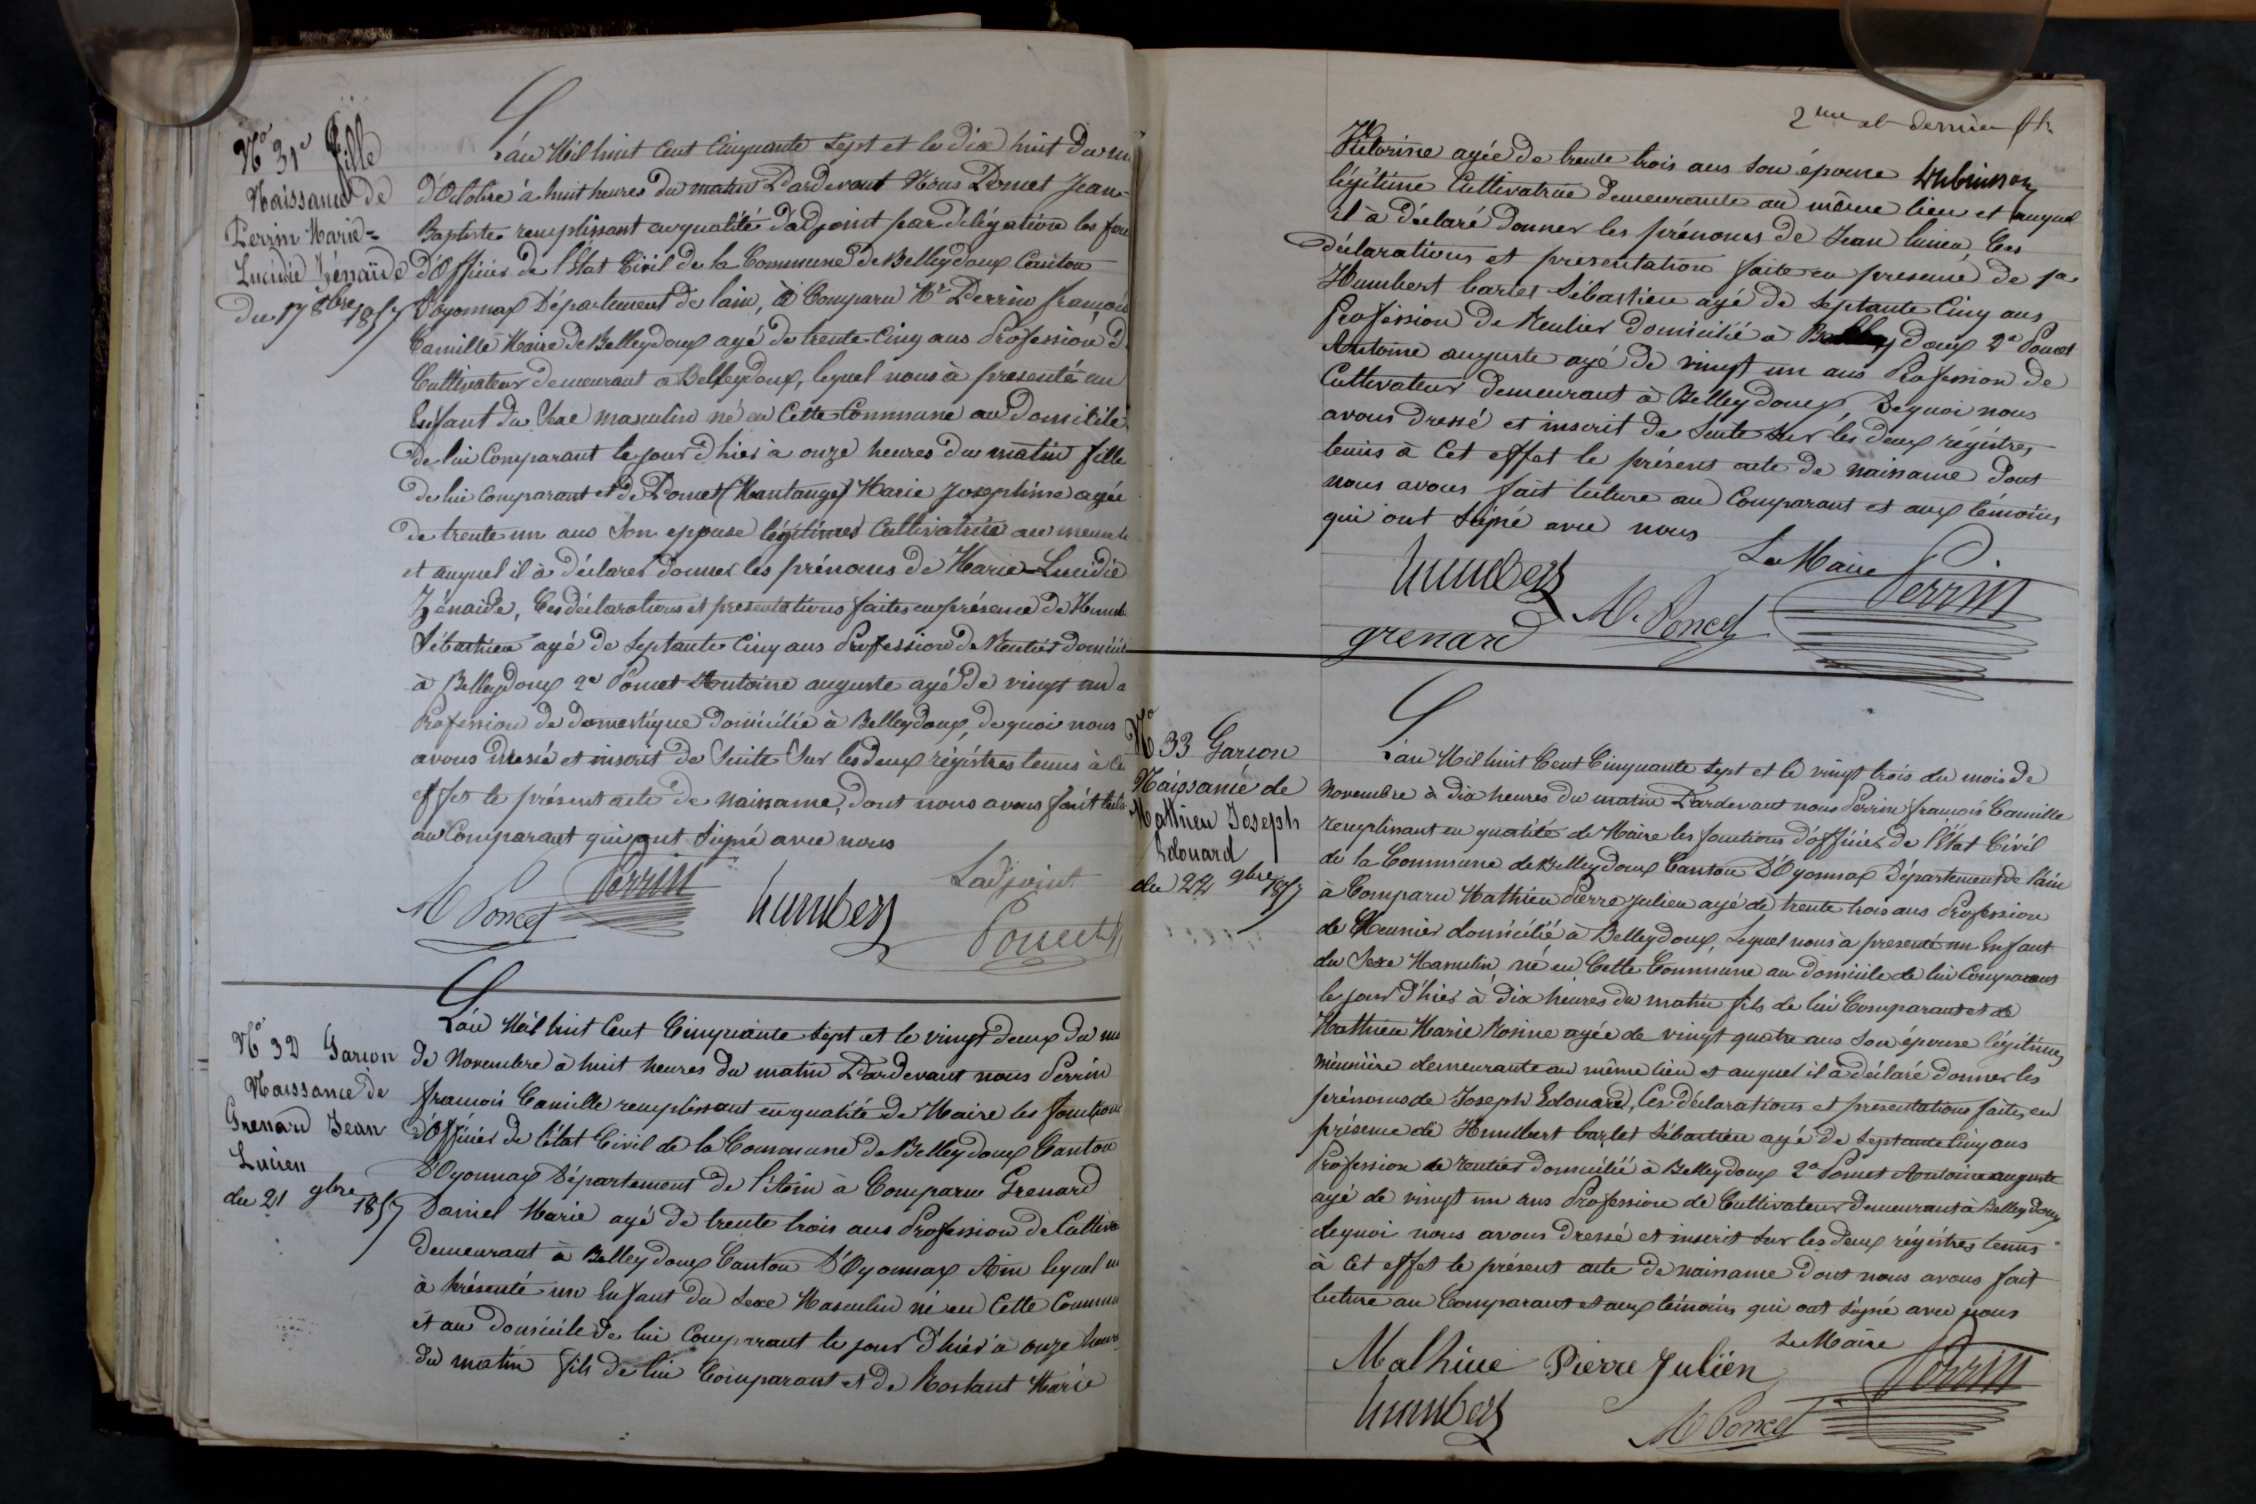 No 31e fille
Naissance de
Perrin Marie=
Lucidie Zénaïde
du 17 8bre 1857
L'an Mil huit Cent Cinquante Sept et le dix huit du
d'Octobre à huit heures du matin Pardevant Nous Poncet Jean=
Baptiste remplissant en qualité d'adjoint par délégation les
d'Officier de l'État Civil de la Commune de Belleydoux Canton
d'Oyonnax Département de l'ain, à Comparu Mr Perrin françois
Camille Maire de Belleydoux agé de trente Cinq ans Profession d
Cultivateur demeurant a Belleydoux, lequel nous à presenté un
Enfant du Sexe masculin né en Cette Commune au domicile
de lui Comparant le jour d'hier à onze heures du matin fille
de lui Comparant et de Poncet (Mantange) Marie Josephine agée
de trente un ans Son epouse légitime Cultivatrice au meme
et auquel il à déclarer donner les prénoms de Marie-Lucidie
Zénaïde, Ces déclarations et presentations faites en présence de
Sébastien agé de Septante Cinq ans Profession de Rentier
à Belleydoux 2e Poncet Antoine auguste agé de vingt un a
Profession de domestique domicilié à Belleydoux, de quoi nous
avons dressé et inscrit de Suite Sur les deux régistres tenus à
effet le présent acte de naissance, dont nous avons fait
au Comparant qui ont Signé avec nous
L'adjoint
M Poncet Perrin humbert Poncet
No 32 Garson
Naissance de
Grenard Jean
Lucien
du 21 9bre 1857
L'an Mil huit Cent Cinquante Sept et le vingt deux du
de Novembre à huit heures du matin Pardevant nous Perrin
françois Camille remplissant en qualité de Maire les fonctions
d'Officier de l'état Civil de la Commune de Belleydoux Canton
D'Oyonnax Département de l'Ain à Comparu Grenard
Daniel Marie agé de trente trois ans Profession de
demeurant à Belleydoux Canton D'Oyonnax Ain lequel
à présenté un Enfant du Sexe Masculin né en Cette
et au Domicile de lui Comparant le jour D'hier à onze
du matin fils de lui Comparant et de Rostant Marie
2me et dernier
Victorine agée de trente trois ans son épouse
légitime Cultivatrice demeurante au même lieu et auquel
il à déclaré Donner les prénoms de Jean lucien Ces
déclarations et presentation faite en presence de 1e
Humbert barlet Sébastien agé de Septante Cinq ans
Profession de Rentier domicilié à Belleydoux 2e Poncet
Antoine auguste agé de vingt un ans Profession de
Cultivateur demeurant à Belleydoux, De quoi nous
avons dressé et inscrit de Suite Sur les deux régistres
tenus à Cet effet le présent acte de naissance dont
nous avons fait lecture au Comparant et aux témoins
qui ont Signé avec nous
Le Maire
humbert M. Poncet Perrin
grenard
No 33 Garson
Naissance de
Mathieu Joseph
Edouard
du 22 9bre 1857
L'an Mil huit Cent Cinquante Sept et le vingt trois du mois de
Novembre à dix heures du matin Pardevant nous Perrin françois Camille
remplissant en qualité de Maire les fonctions d'officier de l'État Civil
de la Commune de Belleydoux Canton D'Oyonnax Département de l'ain
à Comparu Mathieu Pierre Julien agé de trente trois ans Profession
de Meunier domicilié à Belleydoux, Lequel nous à presenté un Enfant
du Sexe Masculin, né en Cette Commune au domicile de lui Comparant
le jour d'hier à dix heures du matin fils de lui Comparant et de
Mathieu Marie Rosine agée de vingt quatre ans Son épouse légitime
meunière demeurante au même lieu et auquel il à déclaré donner les
prénoms de Joseph Edouard, Ces déclarations et presentations faites en
présence de Humbert barlet Sébastien agé de Septante Cinq ans
Profession de rentier domicilié à Belleydoux 2e Poncet Antoine auguste
agé de vingt un ans Profession de Cultivateur demeurant à Belleydoux
de quoi nous avons dressé et inscrit Sur les deux régistres tenus
à Cet effet le présent acte de naissance dont nous avons fait
lecture au Comparant et aux témoins qui ont signé avec nous
Le Maire
Mathieu Pierre Julien Perrin
humbert M Poncet